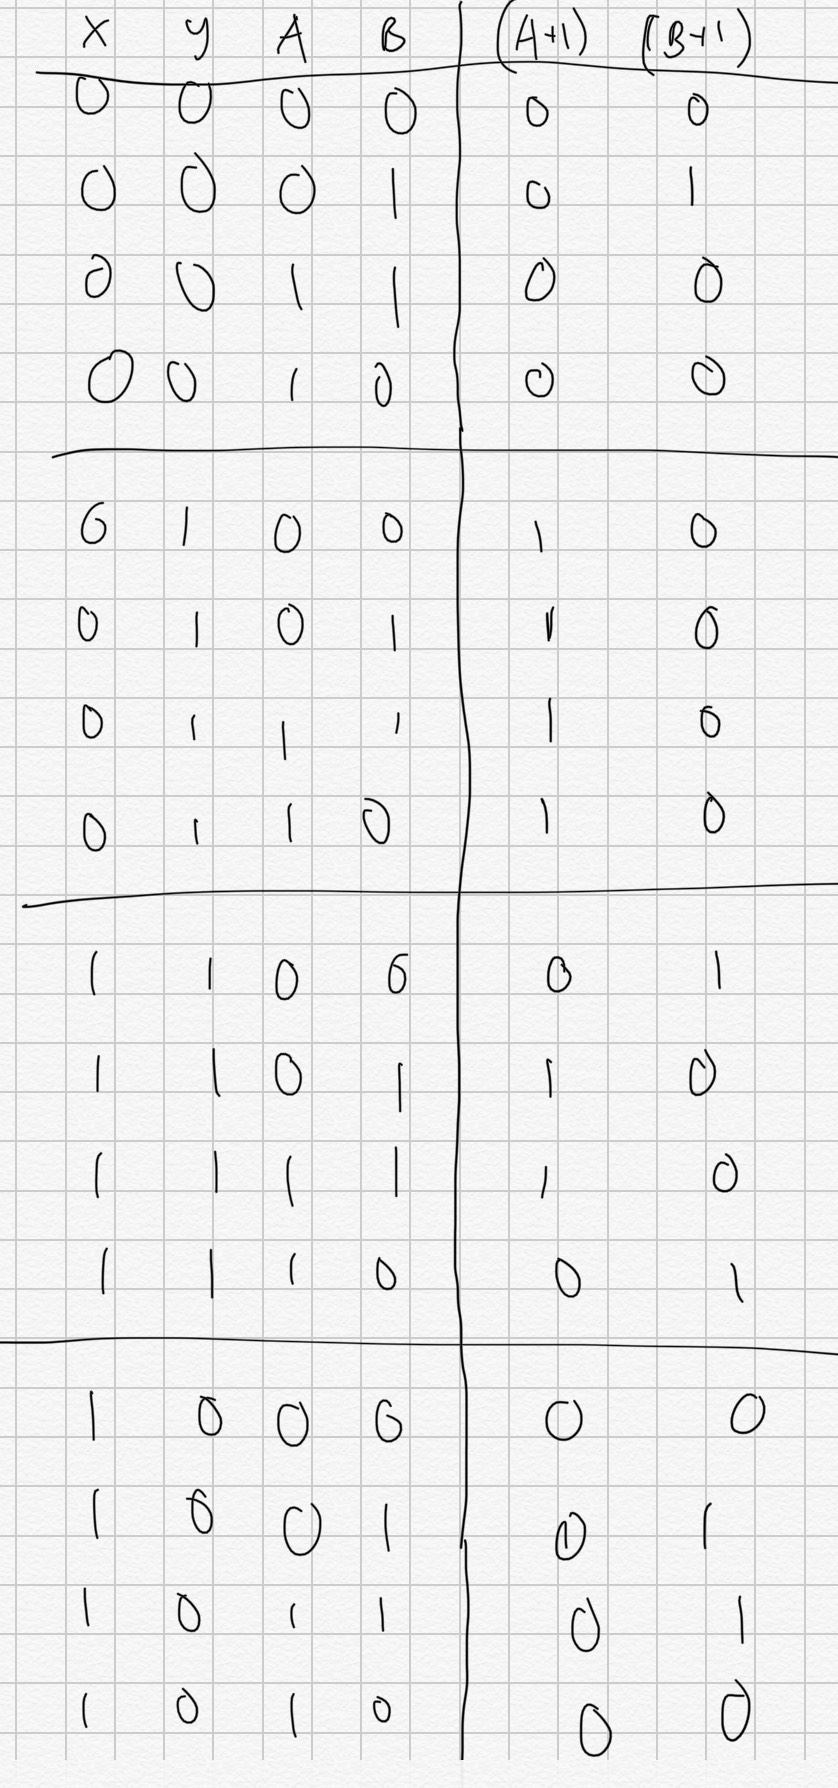 X y A B (A+1) (B+1)
0 0 0 0 0 0
0 0 0 1 0 1
0 0 1 1 0 0
0 0 1 0 0 0
0 1 0 0 1 0
0 1 0 1 1 0
0 1 1 1 1 0
0 1 1 0 1 0
1 1 0 0 0 1
1 1 0 1 1 0
1 1 1 1 1 0
1 1 1 0 0 1
1 0 0 0 0 0
1 0 0 1 0 1
1 0 1 1 0 1
1 0 1 0 0 0